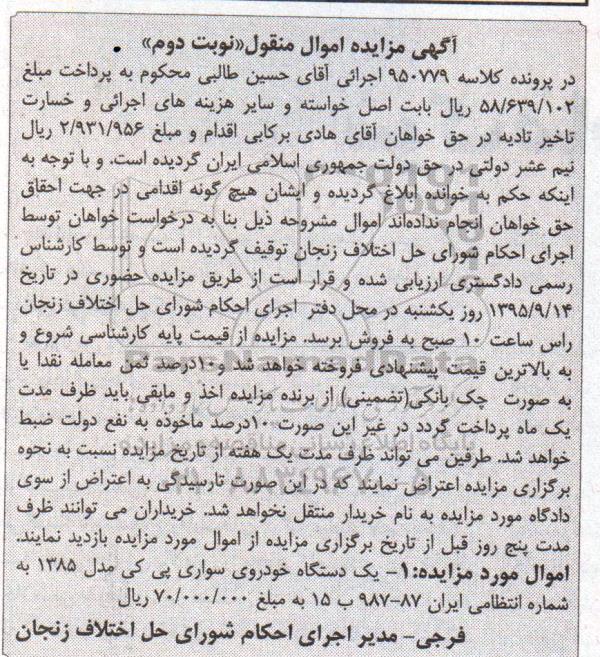 آگهی مزایده اموال منقول«نوبت دوم»
در پرونده کلاسه ۹۵۰۷۷۹ اجرائی آقای حسین طالبی محکوم به پرداخت مبلغ
۵۸/۶۳۹/۱۰۲ ریال بابت اصل خواسته و سایر هزینه های اجرائی و خسارت
تاخیر تادیه در حق خواهان آقای هادی برکابی اقدام و مبلغ ۲/۹۳۱/۹۵۶ ریال
نیم عشر دولتی در حق دولت جمهوری اسلامی ایران گردیده است. و با توجه به
اینکه حکم به خوانده ابلاغ گردیده و ایشان هیچ گونه اقدامی در جهت احقاق
حق خواهان انجام نداده‌اند اموال مشروحه ذیل بنا به درخواست خواهان توسط
اجرای احکام شورای حل اختلاف زنجان توقیف گردیده است و توسط کارشناس
رسمی دادگستری ارزیابی شده و قرار است از طریق مزایده حضوری در تاریخ
۱۳۹۵/۹/۱۴ روز یکشنبه در محل دفتر اجرای احکام شورای حل اختلاف زنجان
راس ساعت ۱۰ صبح به فروش برسد. مزایده از قیمت پایه کارشناسی شروع و
به بالاترین قیمت پیشنهادی فروخته خواهد شد و۱۰درصد ثمن معامله نقدا یا
به صورت چک بانکی(تضمینی) از برنده مزایده اخذ و مابقی باید ظرف مدت
یک ماه پرداخت گردد در غیر این صورت ۱۰درصد ماخوذه به نفع دولت ضبط
خواهد شد. طرفین می تواند ظرف مدت یک هفته از تاریخ مزایده نسبت به نحوه
برگزاری مزایده اعتراض نمایند که در این صورت تارسیدگی به اعتراض از سوی
دادگاه مورد مزایده به نام خریدار منتقل نخواهد شد. خریداران می توانند ظرف
مدت پنج روز قبل از تاریخ برگزاری مزایده از اموال مورد مزایده بازدید نمایند.
اموال مورد مزایده:۱- یک دستگاه خودروی سواری پی کی مدل ۱۳۸۵ به
شماره انتظامی ایران ۸۷-۹۸۷ ب ۱۵ به مبلغ ۷۰/۰۰۰/۰۰۰ ریال
فرجی- مدیر اجرای احکام شورای حل اختلاف زنجان